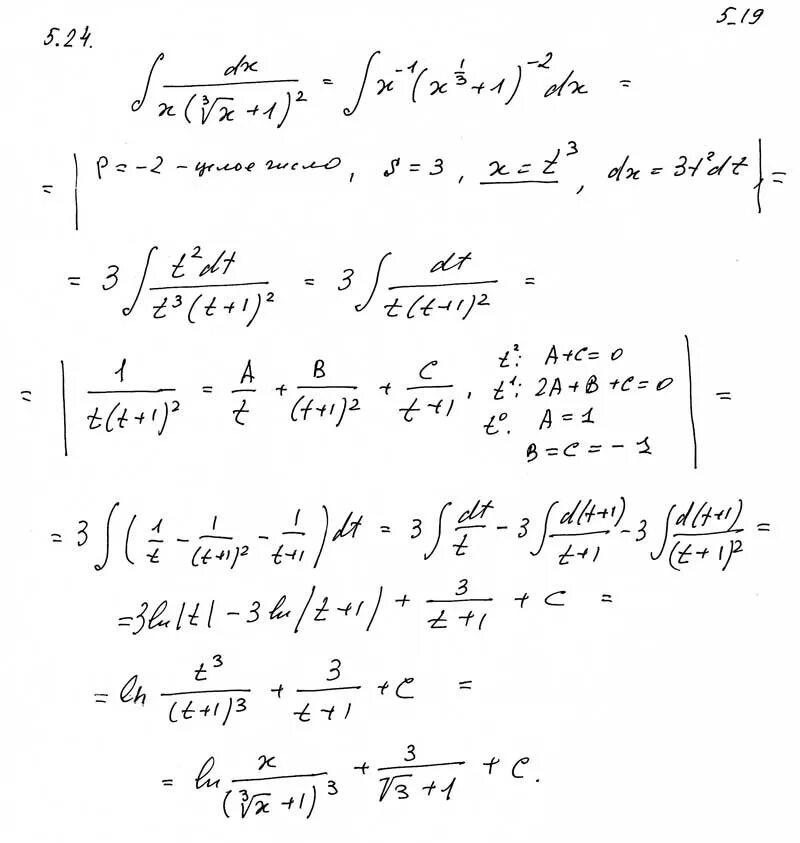 5-19
5.24.
∫ dx / (x(∛x + 1)²) = ∫ x⁻¹(x^(1/3) + 1)⁻² dx =
= | p = -2 - целое число, s = 3, x = t³, dx = 3t²dt | =
= 3 ∫ t²dt / (t³(t+1)²) = 3 ∫ dt / (t(t+1)²) =
= | 1 / (t(t+1)²) = A/t + B/(t+1)² + C/(t+1), t²: A+C=0
t¹: 2A+B+C=0
t⁰. A=1
B=C=-1 | =
= 3 ∫ (1/t - 1/(t+1)² - 1/(t+1)) dt = 3 ∫ dt/t - 3 ∫ d(t+1)/(t+1) - 3 ∫ d(t+1)/(t+1)² =
= 3 ln|t| - 3 ln|t+1| + 3/(t+1) + C =
= ln t³/(t+1)³ + 3/(t+1) + C =
= ln x/(∛x + 1)³ + 3/(√3 + 1) + C.